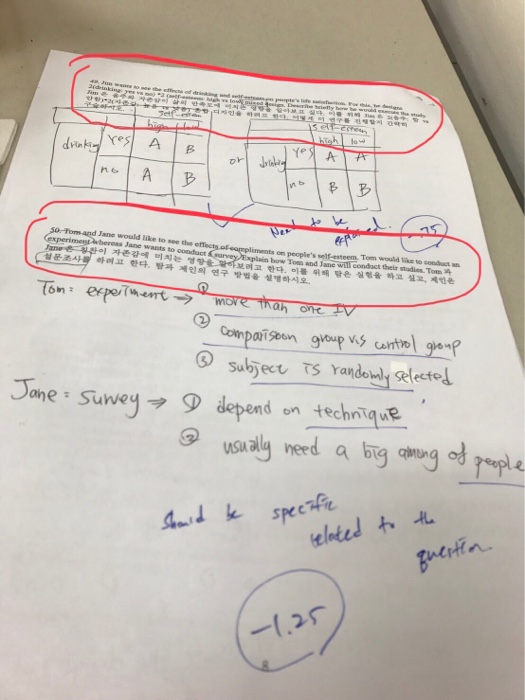 49. Jim wants to see the effects of drinking and self-esteem on people's life satisfaction. For this, he designs
2(drinking: yes vs no) *2 (self-esteem: high vs low) mixed design. Describe briefly how he would execute the study.
Jim은 음주와 자존감이 삶의 만족도에 미치는 영향을 알아보고 싶다. 이를 위해 Jim은 2(음주:
self-esteem
high low
drinking yes A B
no A B
or
self-esteem
high low
drinking yes A A
no B B
Need to be explained.
-.75
50. Tom and Jane would like to see the effects of compliments on people's self-esteem. Tom would like to conduct an
experiment whereas Jane wants to conduct a survey. Explain how Tom and Jane will conduct their studies. Tom과
Jane은 칭찬이 자존감에 미치는 영향을 알아보려고 한다. 이를 위해 탐은 실험을 하고 싶고, 제인은
설문조사를 하려고 한다. 탐과 제인의 연구 방법을 설명하시오.
Tom: experiment → ① more than one IV
② comparison group v.s control group
③ subject is randomly selected
Jane: Survey → ① depend on technique
② usually need a big among of people
Should be specific
related to the
question
-1.25